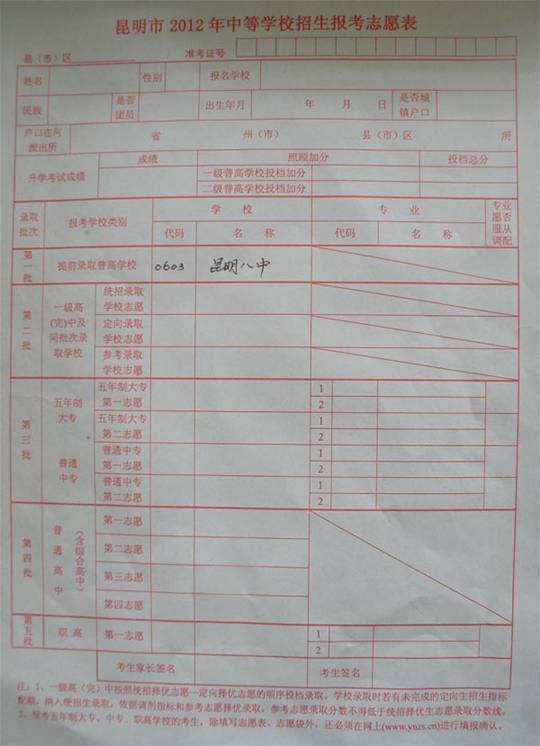 昆明市2012年中等学校招生报考志愿表
县(市)区 准考证号
姓名 性别 报名学校
民族 是否团员 出生年月 年 月 日 是否城镇户口
户口在何派出所 省 州(市) 县(市)区 所
升学考试成绩 成绩 照顾加分 投档总分
一级普高学校投档加分
二级普高学校投档加分
录取批次 报考学校类别 学校 专业 专业愿否服从调配
代码 名称 代码 名称
第一批 提前录取普高学校 0603 昆明八中
第二批 一级高(完)中及同批次录取学校 统招录取学校志愿
定向录取学校志愿
参考录取学校志愿
第三批 五年制大专 五年制大专第一志愿 1
2
五年制大专第二志愿 1
2
普通中专 普通中专第一志愿 1
2
普通中专第二志愿 1
2
第四批 普通高中(含综合高中) 第一志愿
第二志愿
第三志愿
第四志愿
第五批 职高 第一志愿 1
2
考生家长签名 考生签名
注:1、一级高(完)中按照统招择优志愿—定向择优志愿的顺序投档录取,学校录取时若有未完成的定向生招生指标
配额,纳入统招生录取,依据调剂指标和参考志愿择优录取,参考志愿录取分数不得低于统招择优生志愿录取分数线。
2、报考五年制大专、中专、职高学校的考生,除填写志愿表、志愿袋外,还必须在网上(www.ynzs.cn)进行填报确认。